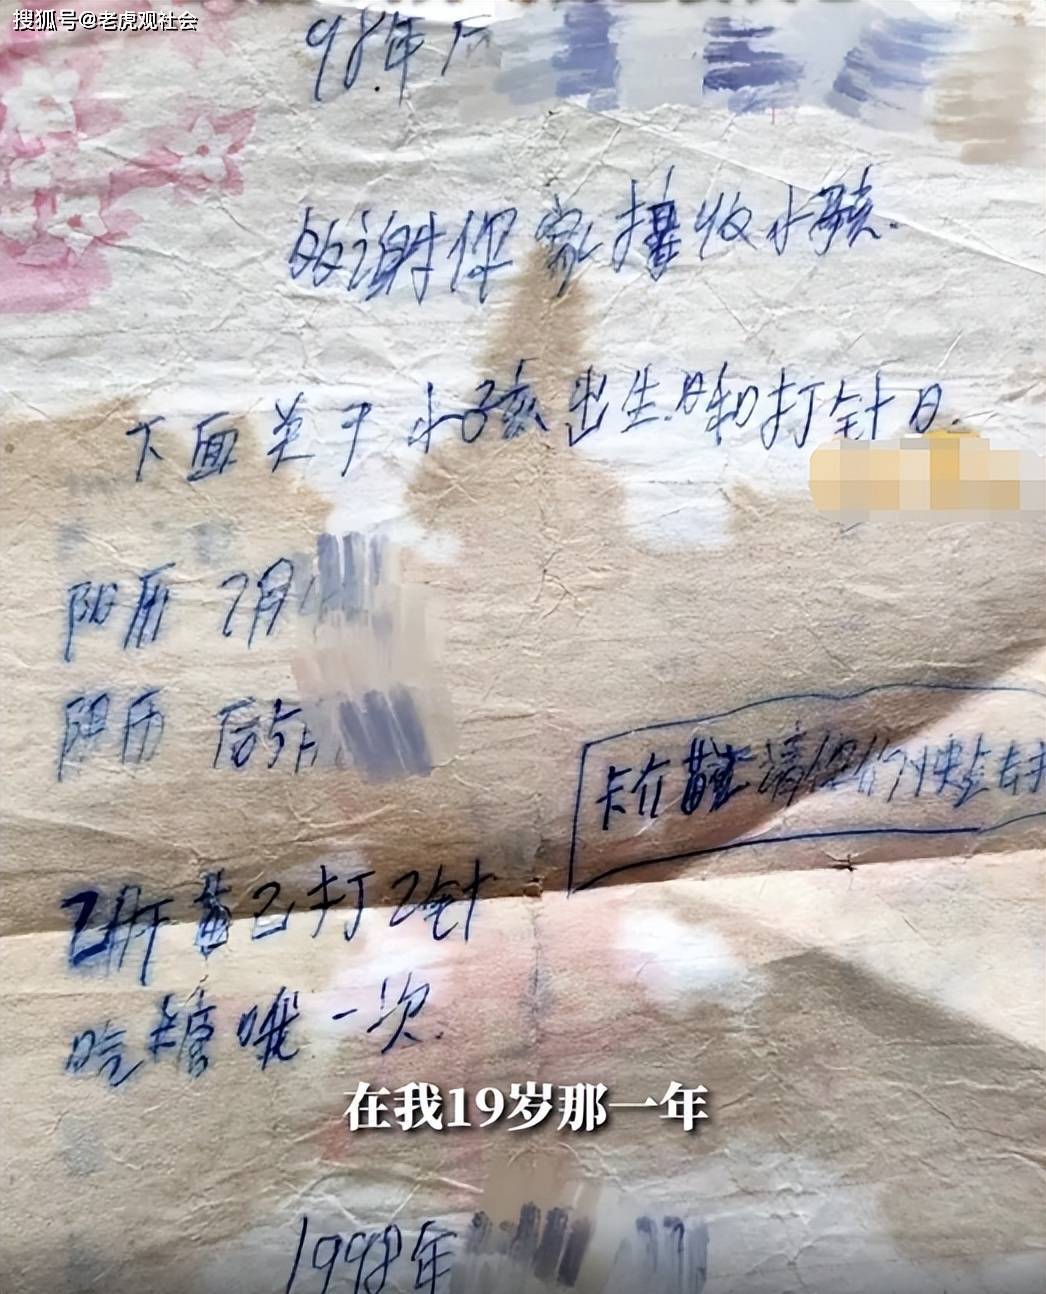 搜狐号@老虎观社会
98年后
谢你家收小孩.
下面关于小孩出生日和打针日.
阳历 7月
阴历 后5月
卡介苗 请你们快点打
乙肝苗已打2针
吃糖 一次.
在我19岁那一年
1998年